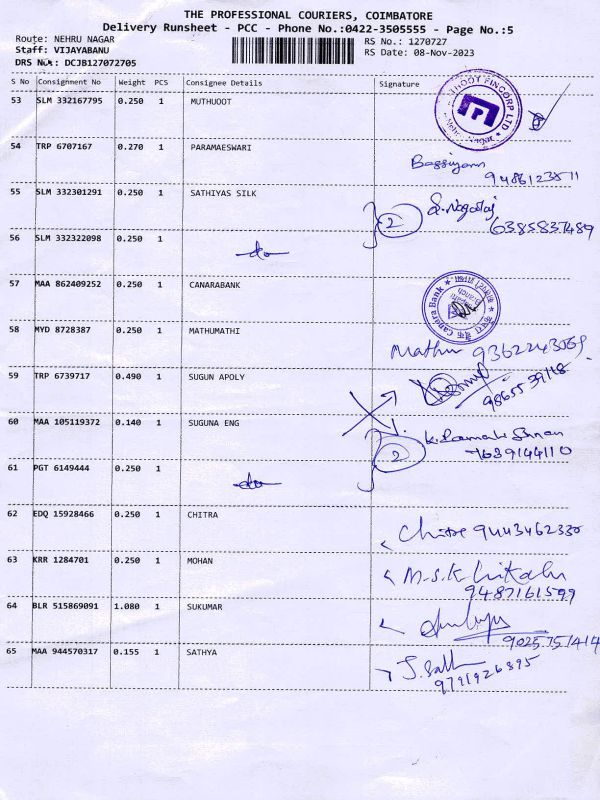 THE PROFESSIONAL COURIERS, COIMBATORE
Delivery Runsheet - PCC - Phone No.:0422-3505555 - Page No.:5
Route: NEHRU NAGAR RS No.: 1270727
Staff: VIJAYABANU RS Date: 08-Nov-2023
DRS No.: DCJB127072705
S No Consignment No Weight PCS Consignee Details Signature
53 SLM 332167795 0.250 1 MUTHUOOT
54 TRP 6707167 0.270 1 PARAMAESWARI
55 SLM 332301291 0.250 1 SATHIYAS SILK 2 S. Nagaraj
6385837489
56 SLM 332322098 0.250 1 do
57 MAA 862409252 0.250 1 CANARABANK Canara Bank
58 MYD 8728387 0.250 1 MATHUMATHI Mathu
59 TRP 6739717 0.490 1 SUGUN APOLY
60 MAA 105119372 0.140 1 SUGUNA ENG 2
7639144110
61 PGT 6149444 0.250 1 do
62 EDQ 15928466 0.250 1 CHITRA 9443462330
63 KRR 1284701 0.250 1 MOHAN
9487161599
64 BLR 515869091 1.080 1 SUKUMAR
9025751414
65 MAA 944570317 0.155 1 SATHYA
9791926895